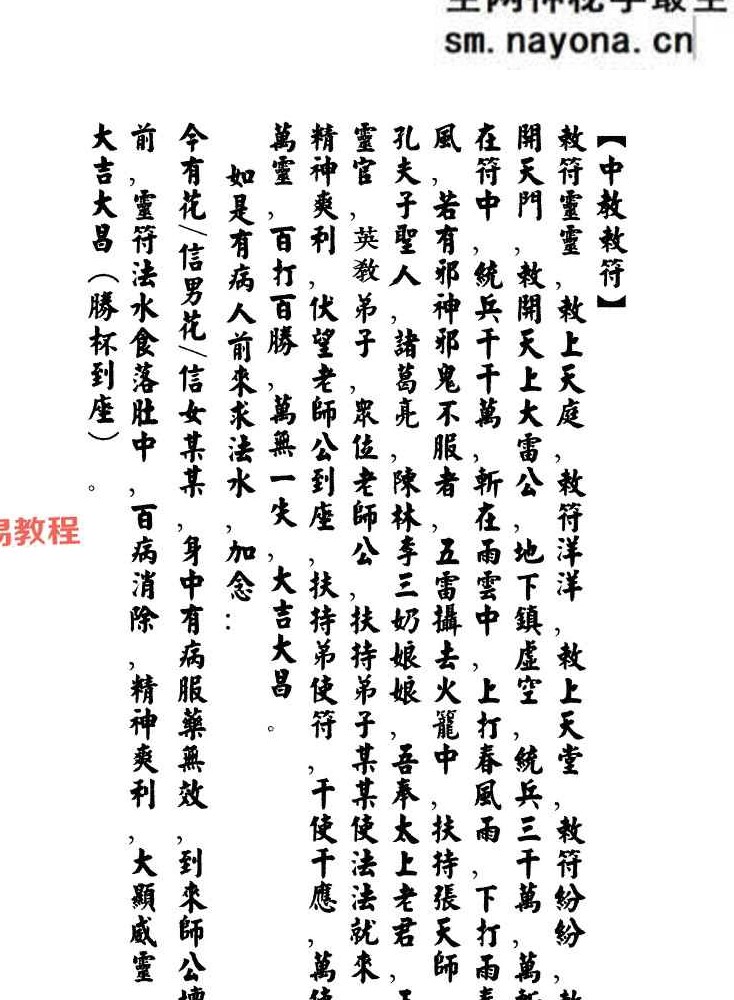 sm.nayona.cn
【中教敕符】
敕符靈靈,敕上天庭,敕符洋洋,敕上天堂,敕符紛紛,
開天門,敕開天上大雷公,地下鎮虛空,統兵三千萬,萬
在符中,統兵千千萬,斬在雨雲中,上打春風雨,下打雨
風,若有邪神邪鬼不服者,五雷攝去火籠中,扶持張天師
孔夫子聖人,諸葛亮,陳林李三奶娘娘,吾奉太上老君,
靈官,英教弟子,眾位老師公,扶持弟子某某使法法就來
精神爽利,伏望老師公到座,扶持弟使符,千使千應,萬
萬靈,百打百勝,萬無一失,大吉大昌。
如是有病人前來求法水,加念:
今有花/信男花/信女某某,身中有病服藥無效,到來師公
前,靈符法水食落肚中,百病消除,精神爽利,大顯威靈
大吉大昌(勝杯到座)。
易教程